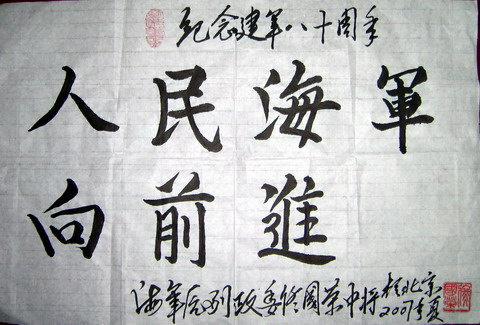 纪念建军八十周年
人民海軍
向前進
海军原副政委佟国荣中将
於北京
2007年夏